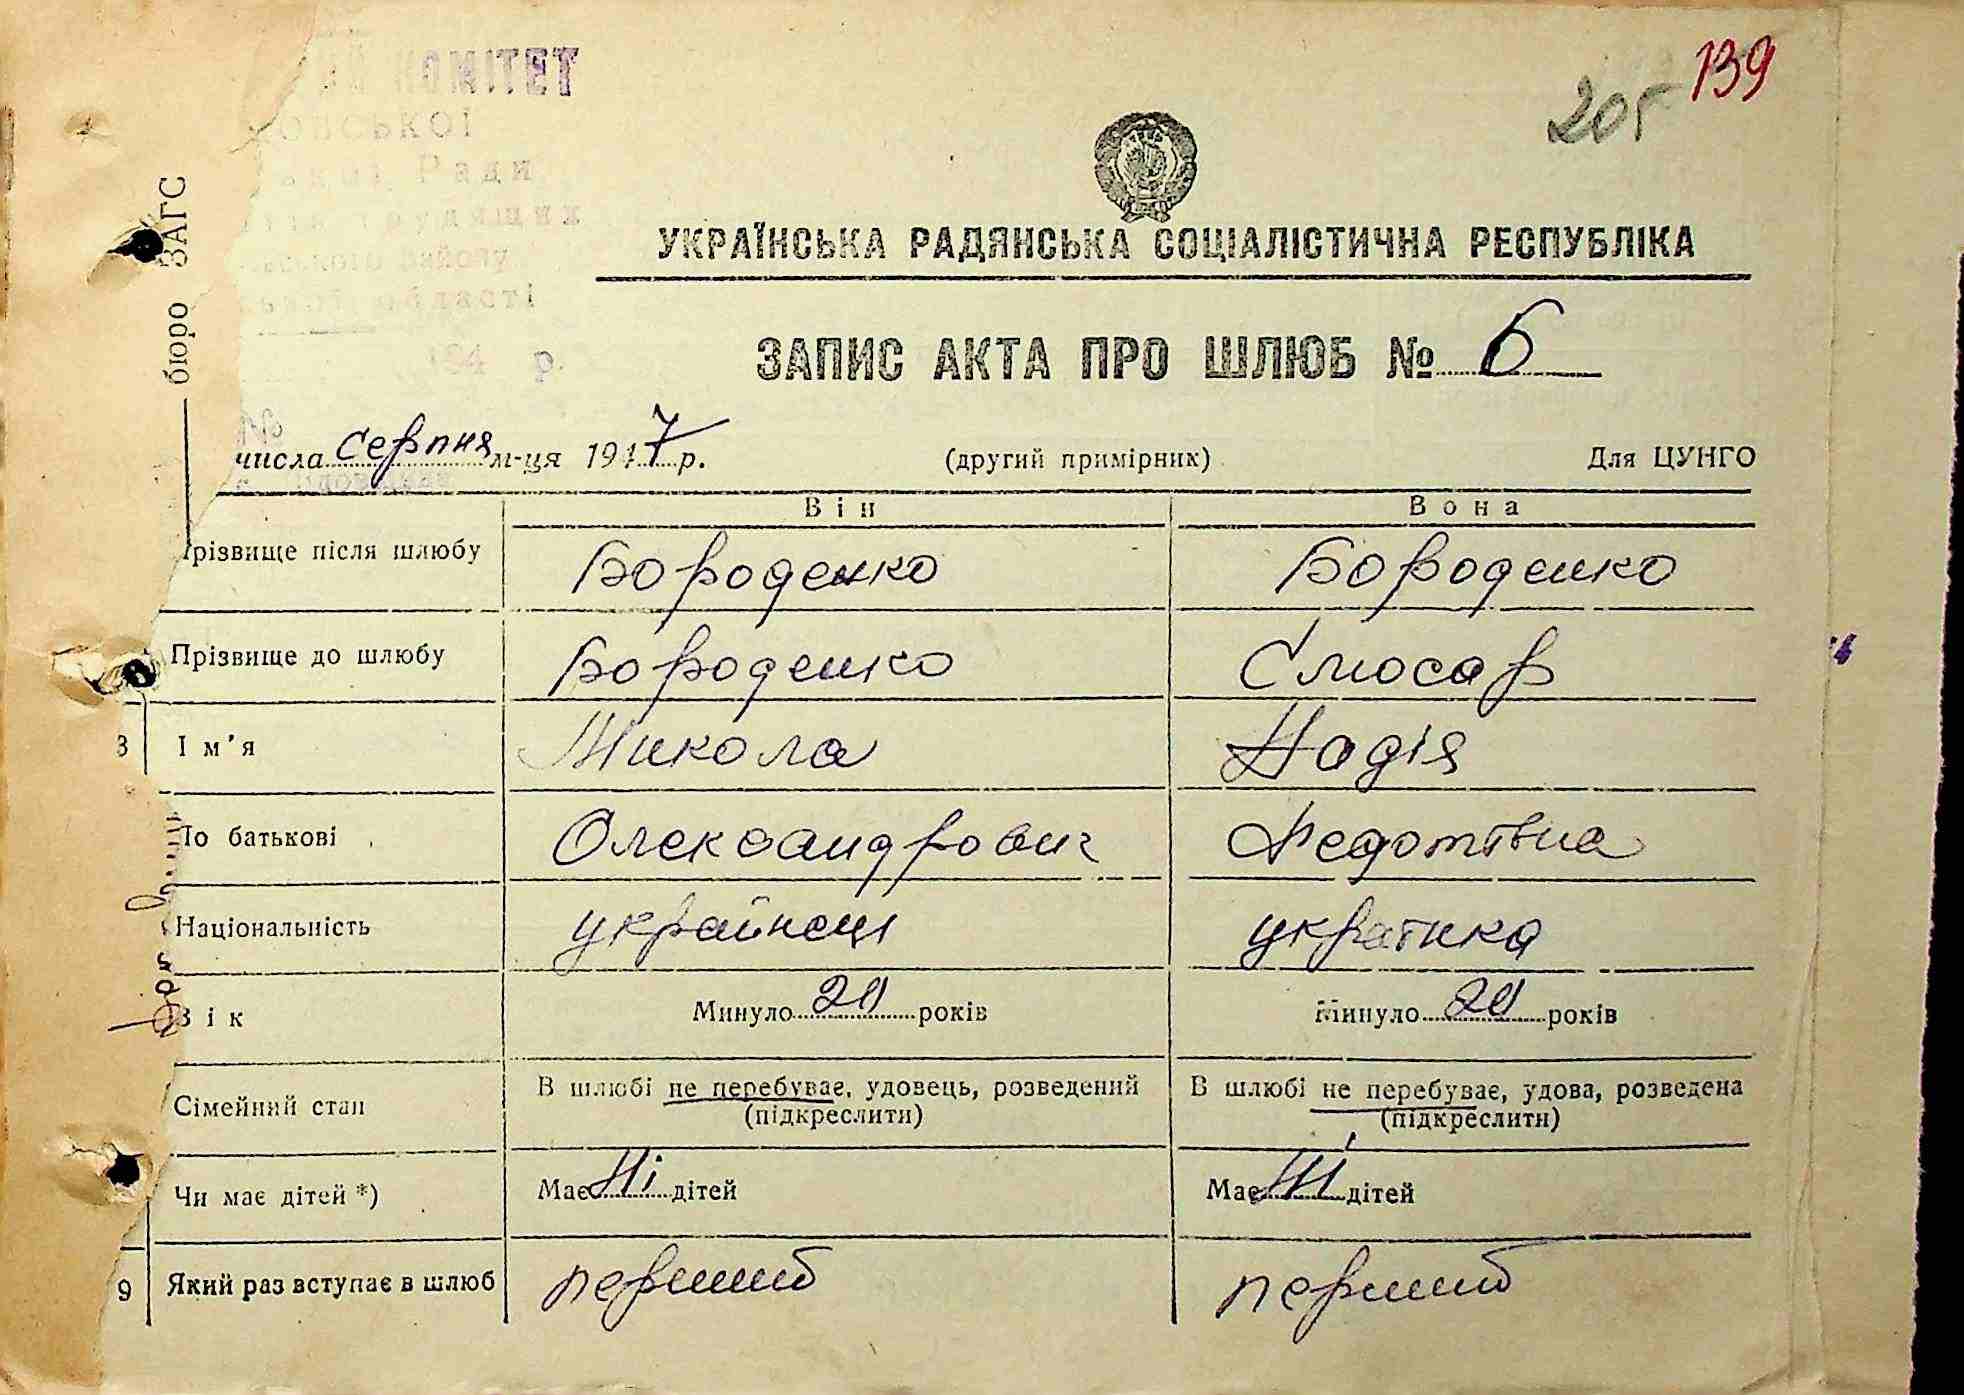 139
205
КОМІТЕТ
ОВСЬКОЇ
Ради
району
області
194 р.
бюро ЗАГС
УКРАЇНСЬКА РАДЯНСЬКА СОЦІАЛІСТИЧНА РЕСПУБЛІКА
ЗАПИС АКТА ПРО ШЛЮБ № 6
числа серпня м-ця 1947 р. (другий примірник) Для ЦУНГО
Він Вона
прізвище після шлюбу Бороденко Бороденко
Прізвище до шлюбу Бороденко Слюсар
3 Ім'я Микола Надія
По батькові Олександрович Федотівна
Національність українець українка
Вік Минуло 20 років Минуло 20 років
Сімейний стан В шлюбі не перебуває, удовець, розведений В шлюбі не перебуває, удова, розведена
(підкреслити) (підкреслити)
Чи має дітей *) Має Ні дітей Має Ні дітей
9 Який раз вступає в шлюб перший перший